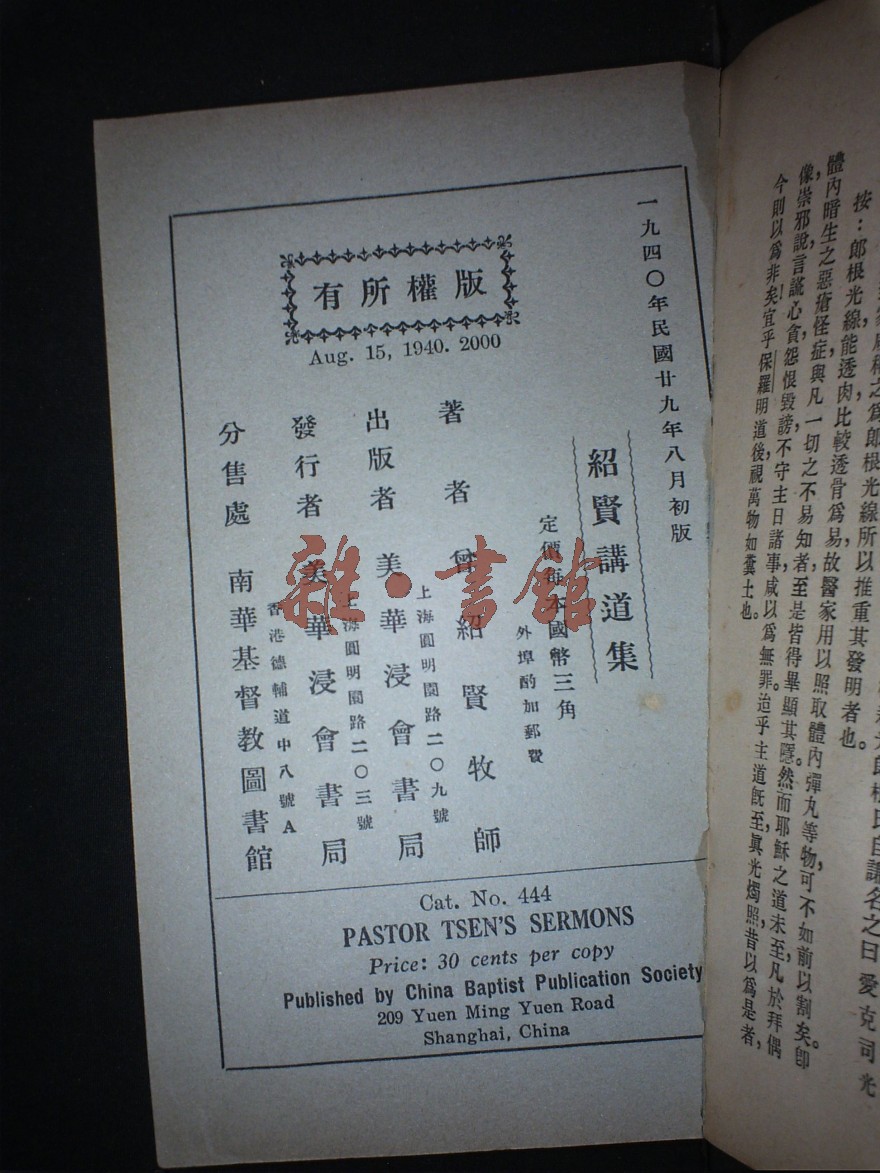 光郎根氏自謙名之曰愛克司光
之爲郎根光線，所以推重其發明者也。
按：郎根光線，能透肉比較透骨爲易，故醫家用以照取體內彈丸等物，可不如前以割矣。卽
體內暗生之惡瘡怪症，與凡一切之不易知者，至是皆得畢顯其隱。然而耶穌之道未至，凡於拜偶
像，崇邪說，言謊，心貪，怨恨毀謗，不守主日諸事，咸以爲無罪。迨乎主道旣至，眞光燭照，昔以爲是者，
今則以爲非矣！宜乎保羅明道後，視萬物如糞土也。
一九四〇年民國廿九年八月初版
紹賢講道集
定價每本國幣三角
外埠酌加郵費
版權所有
Aug. 15, 1940. 2000
著者 曾紹賢牧師
上海圓明園路二〇九號
出版者 美華浸會書局
上海圓明園路二〇三號
發行者 美華浸會書局
香港德輔道中八號A
分售處 南華基督教圖書館
Cat. No. 444
PASTOR TSEN'S SERMONS
Price: 30 cents per copy
Published by China Baptist Publication Society
209 Yuen Ming Yuen Road
Shanghai, China
雜·書館